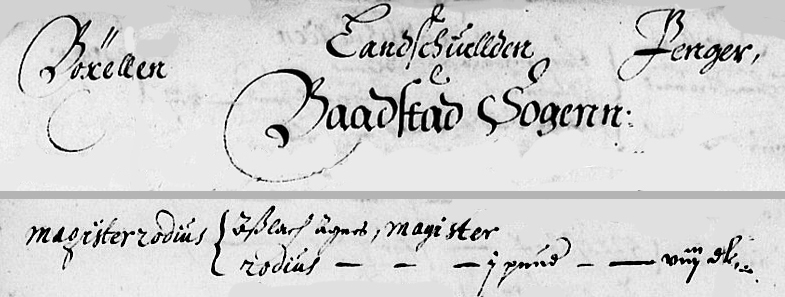 Böxellen Landschüllden Penger,
Baadstad Sogenn:
magister rodius { ägnes, magister
rodius — — — j pund — — viiij